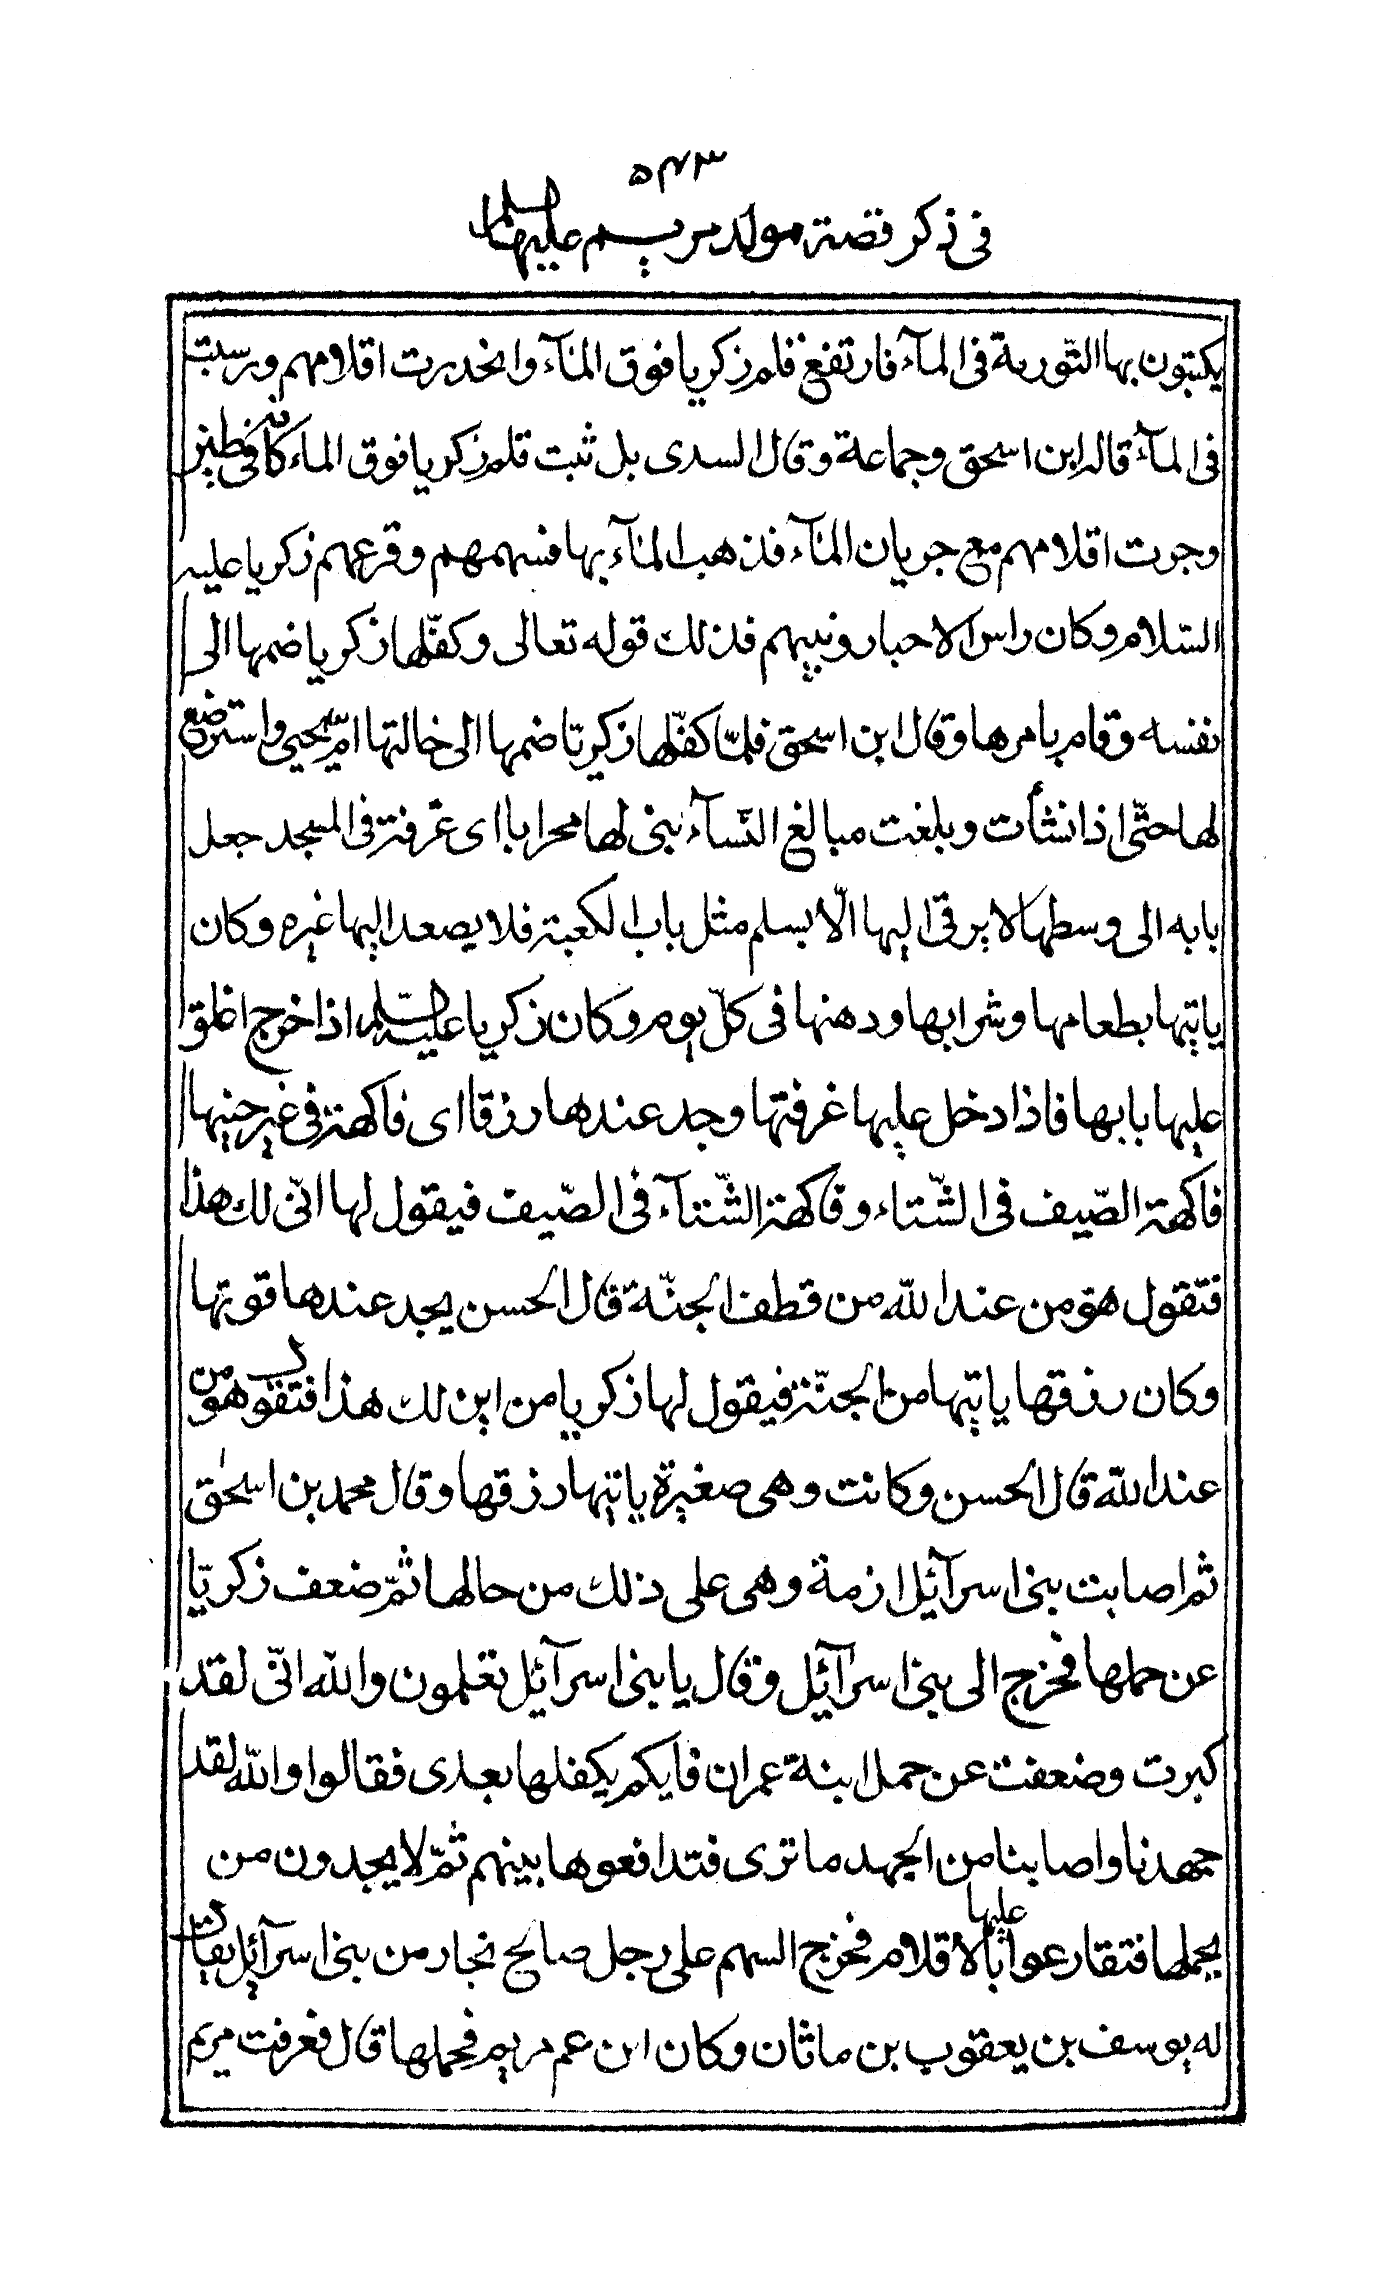 ۵۴۳
فى ذكر قصة مولد مريم عليها السلم
يكتبون بها التّورية فى المآء فارتفع قلم زكريا فوق المآء وانحدرت اقلامهم ورسبت
فى المآء قاله ابن اسحق وجماعة وقال السدى بل ثبت قلم زكريا فوق الماء كانّه فى طين
وجرت اقلامهم مع جريان المآء فذهب المآء بها فسهمهم وقرعهم زكريا عليه
السّلام وكان راس الاحبار ونبيهم فذلك قوله تعالى وكفّلها زكريا ضمها الى
نفسه وقام بامرها وقال ابن اسحق فلمّا كفّلها زكريّا ضمها الى خالتها امّ يحيى واسترضع
لها حتّى اذا نشأت وبلغت مبالغ النّسآء بنى لها محرابا اى غرفة فى المسجد جعل
بابه الى وسطها لا يرقى اليها الّا بسلم مثل باب الكعبة فلا يصعد اليها غيره وكان
ياتيها بطعامها وشرابها ودهنها فى كلّ يوم وكان زكريا عليه السّلم اذا خرج اغلق
عليها بابها فاذا دخل عليها غرفتها وجد عندها رزقا اى فاكهة فى غير حينها
فاكهة الصّيف فى الشّتاء وفاكهة الشّتآء فى الصّيف فيقول لها انّى لك هذا
فتقول هو من عند الله من قطف الجنّة قال الحسن يجد عندها قوتها
وكان رزقها ياتيها من الجنّة فيقول لها زكريا من اين لك هذا فتقول هو من
عند الله قال الحسن وكانت وهى صغيرة ياتيها رزقها وقال محمد بن اسحٰق
ثم اصابت بنى اسرآئيل ازمة وهى على ذلك من حالها ثمّ ضعف زكريّا
عن حملها فخرج الى بنى اسرآئيل وقال يا بنى اسرآئيل تعلمون والله انّى لقد
كبرت وضعفت عن حمل ابنة عمران فايكم يكفلها بعدى فقالوا والله لقد
جهدنا واصابنا من الجهد ما ترى فتدافعوها بينهم ثمّ لا يجدون من
يحملها فتقارعوا عليها بالاقلام فخرج السهم على رجل صالح نجار من بنى اسرآئيل يقال
له يوسف بن يعقوب بن ماثان وكان ابن عم مريم فحملها قال فعرفت مريم